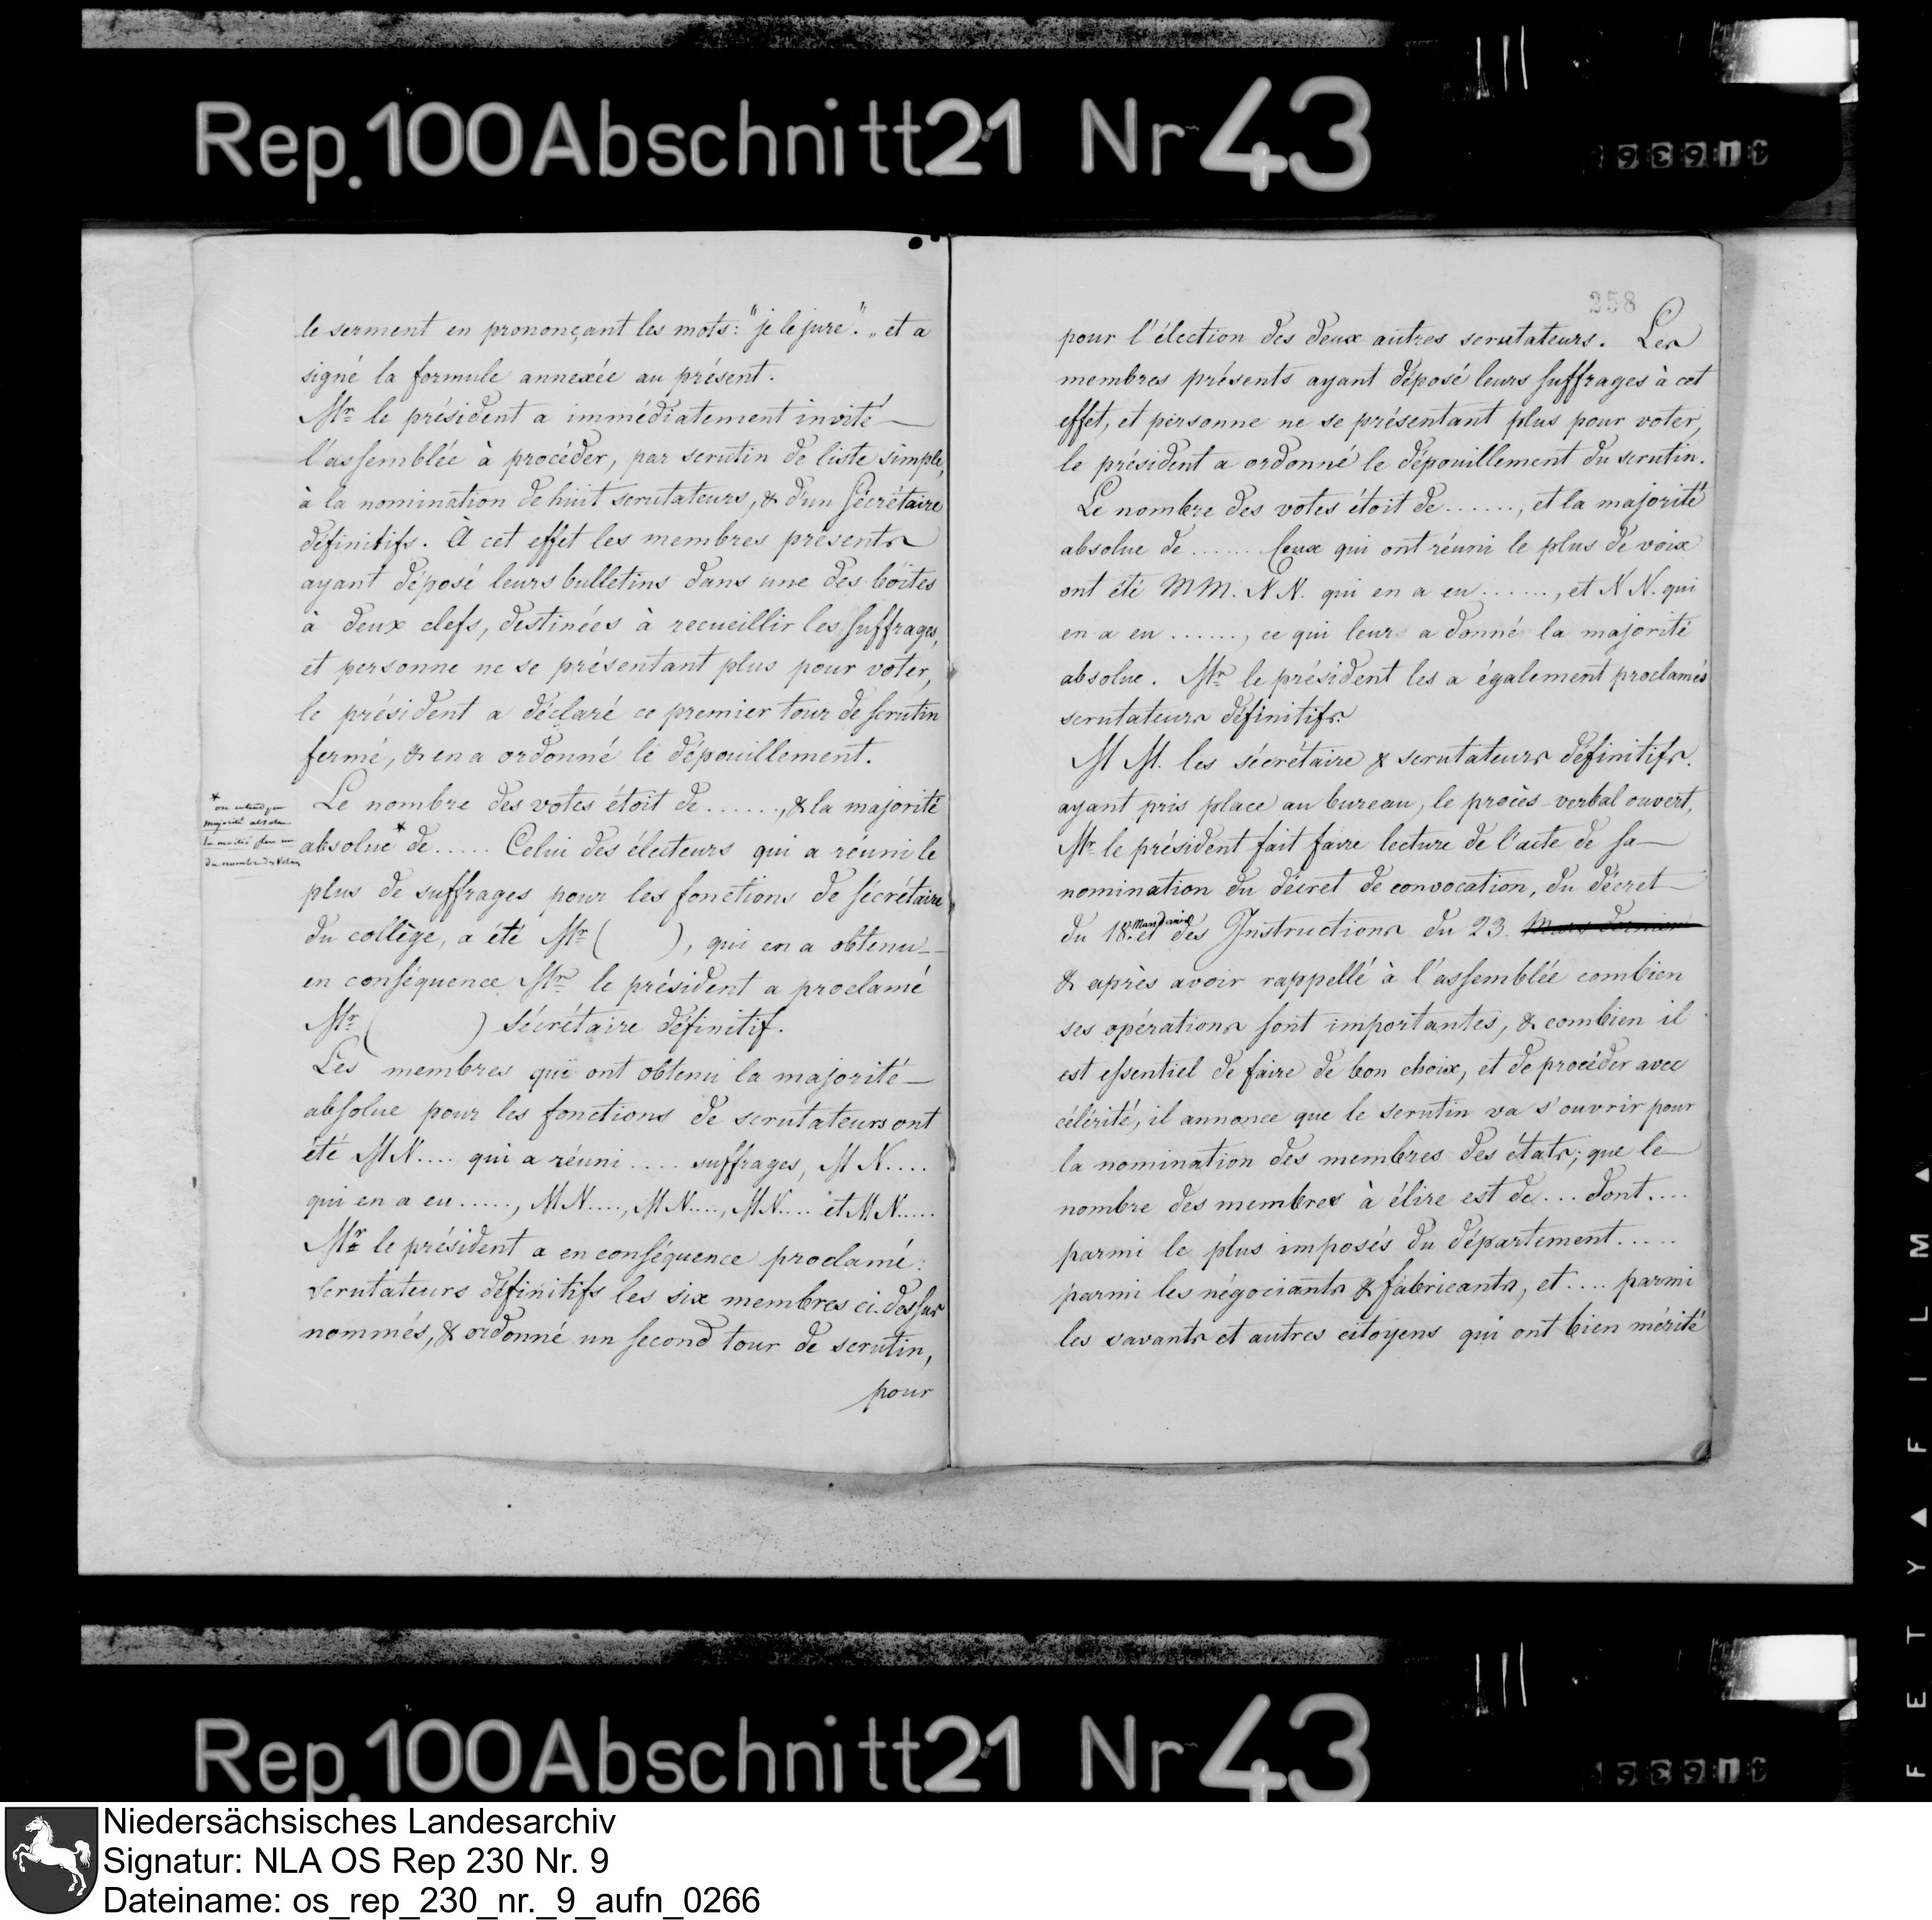 Rep. 100 Abschnitt 21 Nr 43
le serment en prononçant les mots: "je le jure". „ et a
signé la formule annexée au présent.
Mr. le président a immédiatement invité
l'assemblée à procéder, par scrutin de liste simple,
à la nomination de huit scrutateurs, & d'un Sécrétaire
définitifs. À cet effet les membres présents
ayant déposé leurs bulletins dans une des boîtes
à deux clefs, destinées à recueillir les suffrages,
et personne ne se présentant plus pour voter,
le président a déclaré ce premier tour de scrutin
fermé, & en a ordonné le dépouillement.
Le nombre des votes étoit de ......, & la majorité
absolue* de ..... Celui des électeurs qui a réuni le
plus de suffrages pour les fonctions de sécrétaire
du collège, a été Mr. ( ), qui en a obtenu
en conséquence Mr. le président a proclamé
Mr. ( ) sécrétaire définitif.
Les membres qui ont obtenu la majorité
absolue pour les fonctions de scrutateurs ont
été M N.... qui a réuni ..... suffrages, M N....
qui en a eu ....., M N...., M N...., M N.... et M N.....
Mr. le président a en conséquence proclamé
Scrutateurs définitifs les six membres ci-dessus
nommés, & ordonné un second tour de scrutin,
pour
* on entend par
majorité absolue
la moitié plus un
du nombre des votans
258
pour l'élection des deux autres scrutateurs. Les
membres présents ayant déposé leurs suffrages à cet
effet, et personne ne se présentant plus pour voter,
le président a ordonné le dépouillement du scrutin.
Le nombre des votes étoit de ......, et la majorité
absolue de ...... Ceux qui ont réuni le plus de voix
ont été MM. N N. qui en a eu ......, et N N. qui
en a eu ......, ce qui leur a donné la majorité
absolue. Mr. le président les a également proclamés
scrutateurs définitifs.
M M. les sécrétaire & scrutateurs définitifs.
ayant pris place au bureau, le procès-verbal ouvert,
Mr. le président fait faire lecture de l'acte de sa
nomination du décret de convocation, du décret
du 18. Mars dernier et des Instructions du 23. Mars dernier
& après avoir rappellé à l'assemblée combien
ses opérations sont importantes, & combien il
est essentiel de faire de bon choix, et de procéder avec
célérité, il annonce que le scrutin va s'ouvrir pour
la nomination des membres des états; que le
nombre des membres à élire est de ... dont ....
parmi le plus imposés du département .....
parmi les négociants & fabricants, et .... parmi
les savants et autres citoyens qui ont bien mérité
FETYAFILM
Rep. 100 Abschnitt 21 Nr 43
Niedersächsisches Landesarchiv
Signatur: NLA OS Rep 230 Nr. 9
Dateiname: os_rep_230_nr._9_aufn_0266